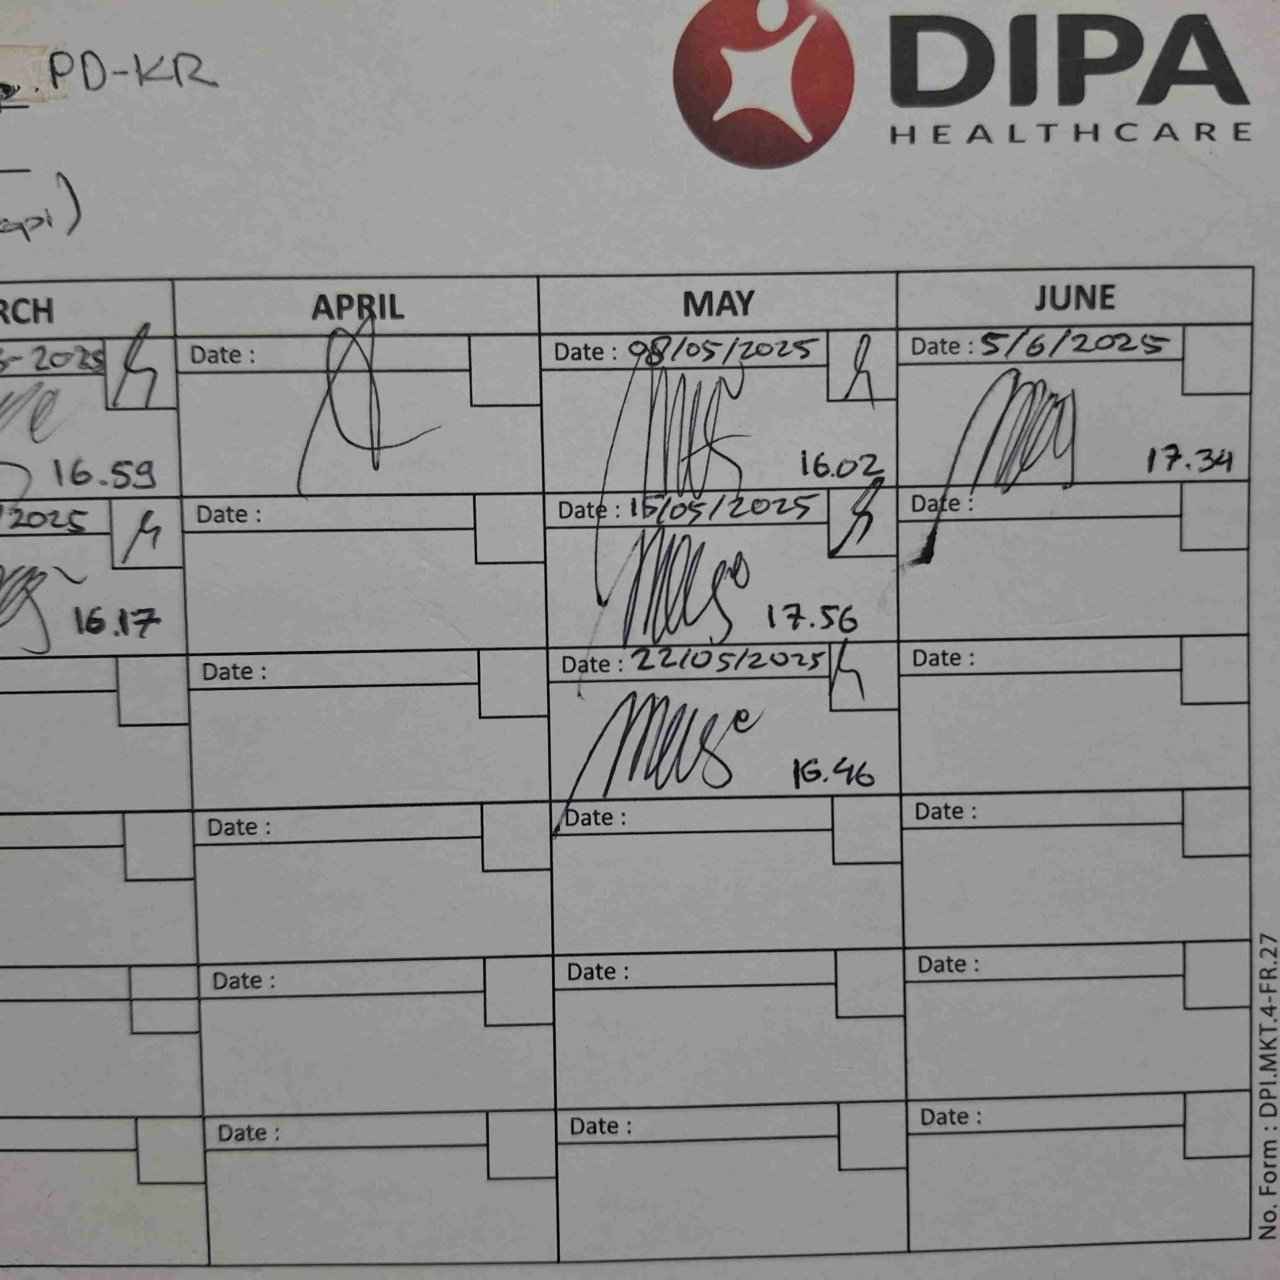 PD-KR
DIPA
HEALTHCARE
RCH APRIL MAY JUNE
-2025 Date : Date : 08/05/2025 Date : 5/6/2025
16.59 16.02 17.34
2025 Date : Date : 15/05/2025 Date :
16.17 17.56
Date : Date : 22/05/2025 Date :
16.46
Date : Date : Date :
Date : Date : Date :
Date : Date : Date :
No. Form : DPI.MKT.4-FR.27